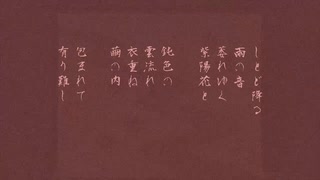 しとど降る
雨の音
暮れゆく
紫陽花と
鈍色の
雲流れ
衣重ね
繭の内
包まれて
有り難し